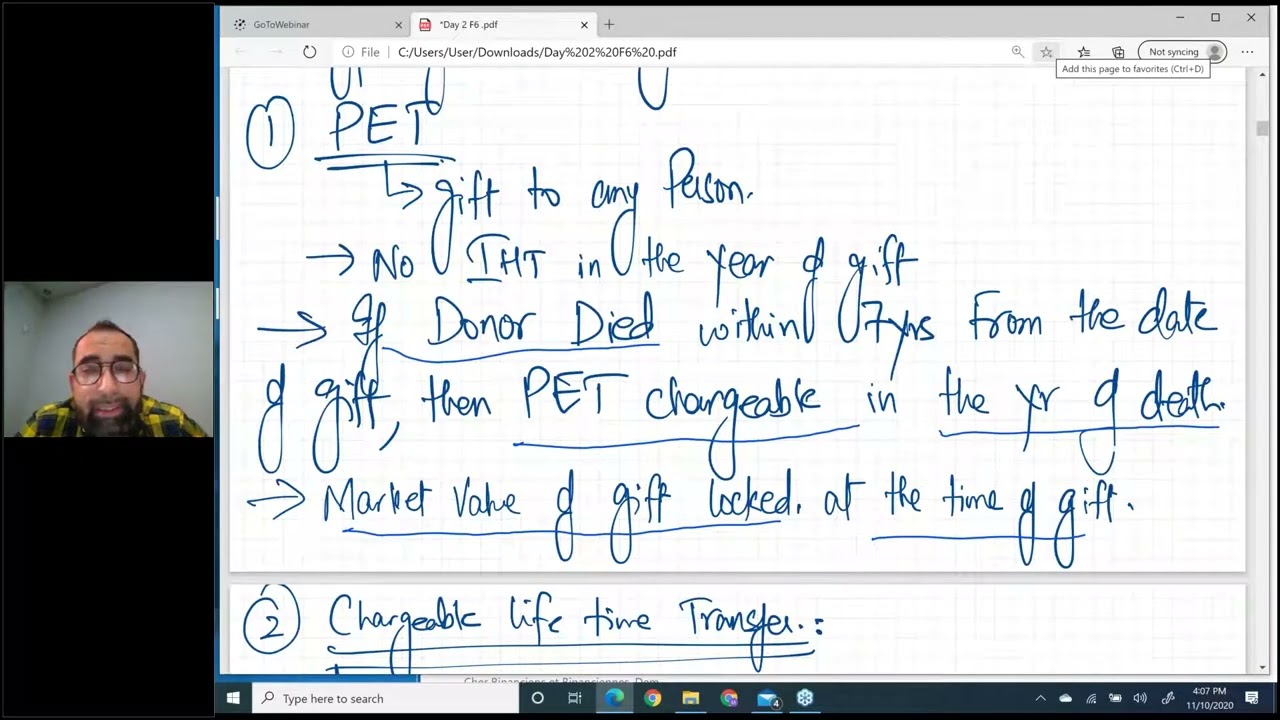 GoToWebinar
*Day 2 F6 .pdf
File
C:/Users/User/Downloads/Day%202%20F6%20.pdf
Not syncing
Add this page to favorites (Ctrl+D)
① PET
↳ gift to any Person.
→ No IHT in the year of gift
→ If Donor Died within 7yrs From the date
of gift, then PET chargeable in the yr of death.
→ Market Value of gift locked. at the time of gift.
② Chargeable life time Transfer. :
Type here to search
4
4:07 PM
11/10/2020